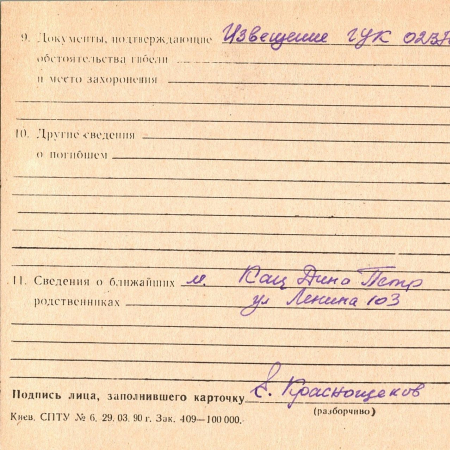 9. Документы, подтверждающие Извещение ГУК 0237
обстоятельства гибели
и место захоронения
10. Другие сведения
о погибшем
11. Сведения о ближайших м. Кац Дина Петр
родственниках ул Ленина 103
Подпись лица, заполнившего карточку Е. Краснощеков
(разборчиво)
Киев. СПТУ № 6, 29. 03. 90 г. Зак. 409—100 000.